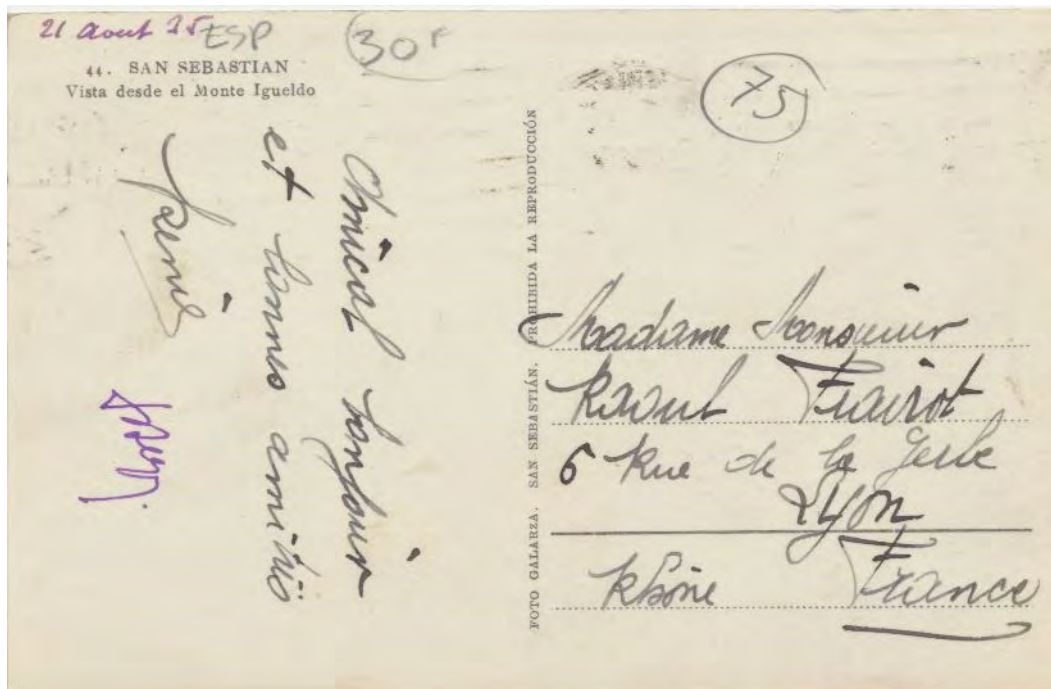 21 Aout 35 ESP
30 F
44. SAN SEBASTIAN
Vista desde el Monte Igueldo
Amical bonjour
et bonnes amitiés
75
FOTO GALARZA. SAN SEBASTIÁN. PROHIBIDA LA REPRODUCCIÓN
Madame Monsieur
Raoul
6 Rue de la Gerbe
Lyon
Rhône France